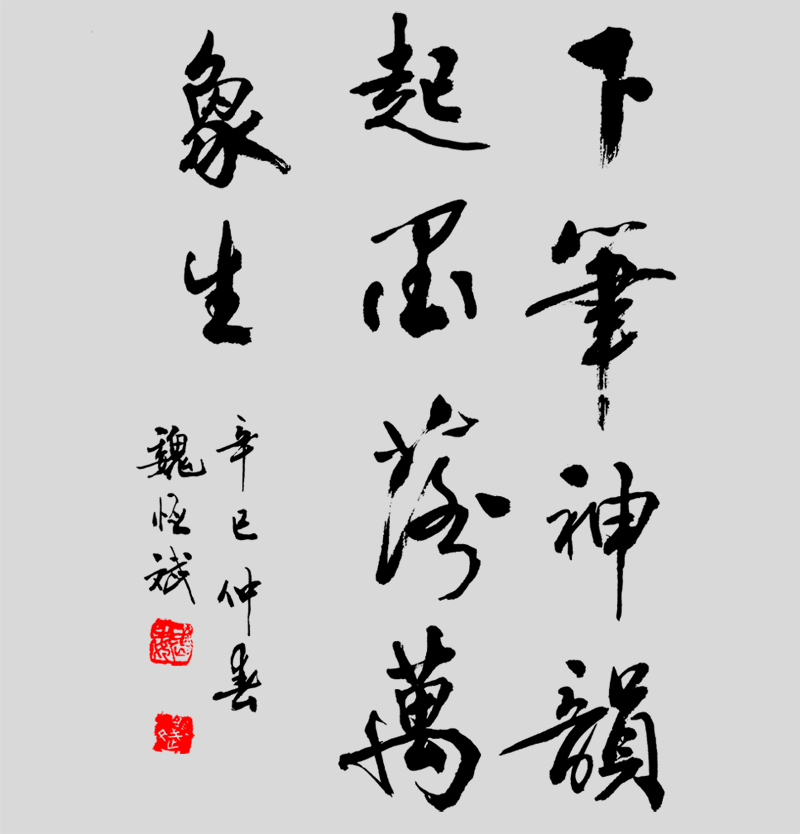 下筆神韻
起墨落萬
象生
辛巳仲春
魏恒斌